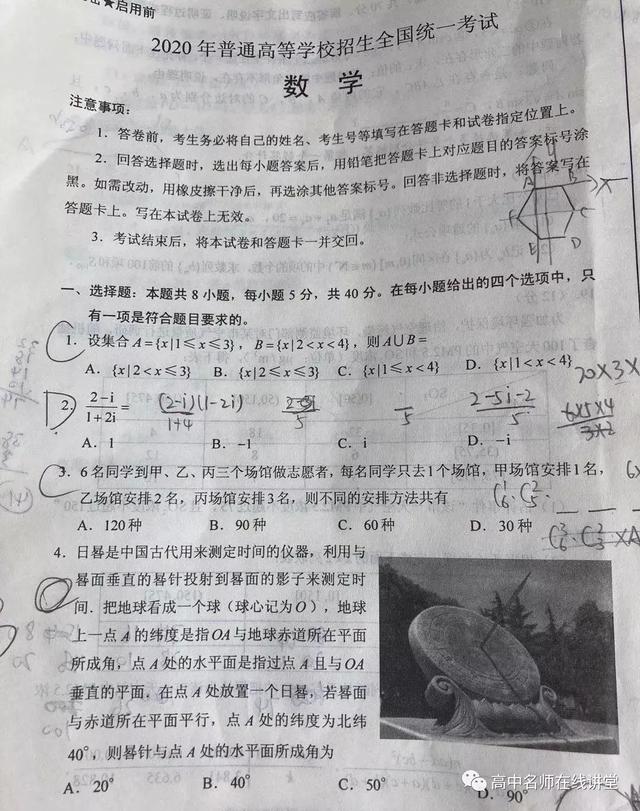 ★启用前
2020 年普通高等学校招生全国统一考试
数 学
注意事项：
1．答卷前，考生务必将自己的姓名、考生号等填写在答题卡和试卷指定位置上。
2．回答选择题时，选出每小题答案后，用铅笔把答题卡上对应题目的答案标号涂
黑。如需改动，用橡皮擦干净后，再选涂其他答案标号。回答非选择题时，将答案写在
答题卡上。写在本试卷上无效。
3．考试结束后，将本试卷和答题卡一并交回。
一、选择题：本题共 8 小题，每小题 5 分，共 40 分。在每小题给出的四个选项中，只
有一项是符合题目要求的。
1．设集合 A={x|1≤x≤3}，B={x|2<x<4}，则 A∪B=
A．{x|2<x≤3} B．{x|2≤x≤3} C．{x|1≤x<4} D．{x|1<x<4}
2．(2-i)/(1+2i)= (2-i)(1-2i)/(1+4) 5 5 (2-5i-2)/5
A．1 B．-1 C．i D．-i
20×3×
6×5×4
3×2
3．6 名同学到甲、乙、丙三个场馆做志愿者，每名同学只去1个场馆，甲场馆安排1名，
乙场馆安排 2 名，丙场馆安排 3 名，则不同的安排方法共有
A．120 种 B．90 种 C．60 种 D．30 种
4．日晷是中国古代用来测定时间的仪器，利用与
晷面垂直的晷针投射到晷面的影子来测定时
间．把地球看成一个球（球心记为 O），地球
上一点 A 的纬度是指 OA 与地球赤道所在平面
所成角，点 A 处的水平面是指过点 A 且与 OA
垂直的平面．在点 A 处放置一个日晷，若晷面
与赤道所在平面平行，点 A 处的纬度为北纬
40°，则晷针与点 A 处的水平面所成角为
A．20° B．40° C．50° D．90°
高中名师在线讲堂